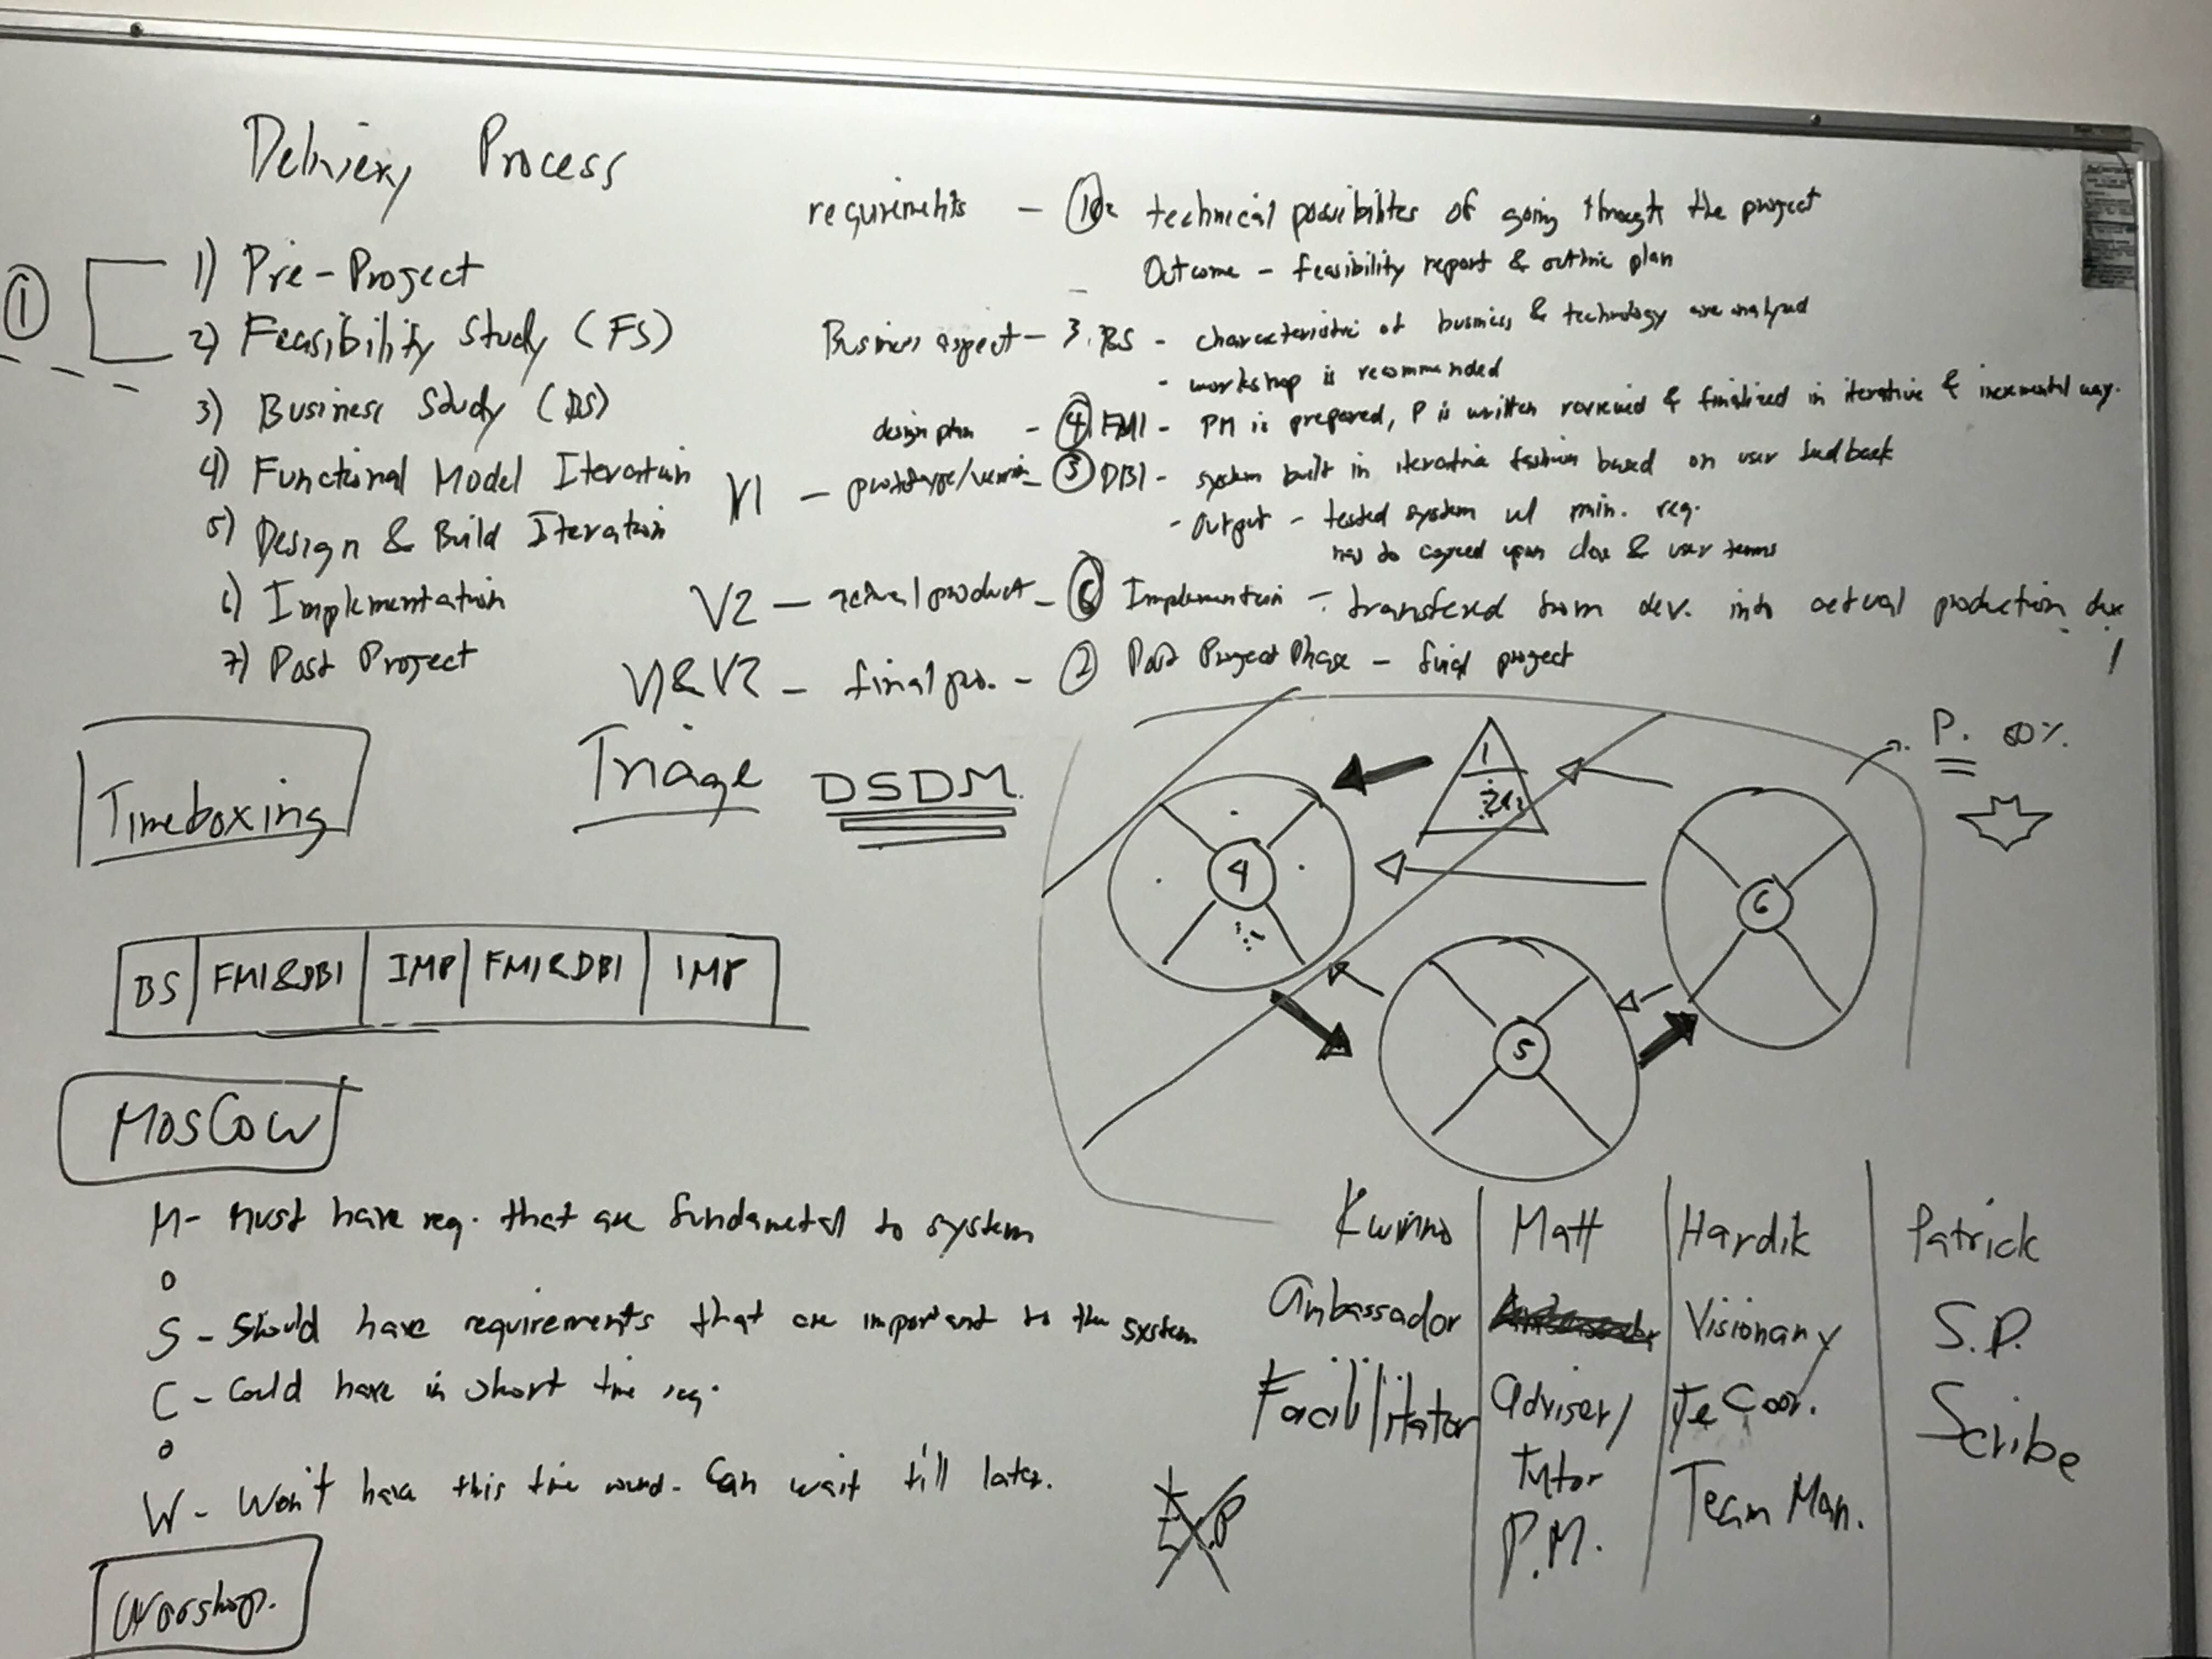 Delivery Process
1) Pre-Project
2) Feasibility Study (FS)
3) Business Study (BS)
4) Functional Model Iteration
5) Design & Build Iteration
6) Implementation
7) Post Project
①
requirements - technical possibilites of going through the project
Outcome - feasibility report & outline plan
Business aspect - 3. BS - characteristic of business & technology are analyzed
- workshop is recommended
design plan - ④ FMI - PM is prepared, P is written reviewed & finalized in iterative & incremental way.
V1 - prototype/version - ⑤ DBI - system built in iterative fashion based on user feedback
- Output - tested system w/ min. req.
upon & user terms
V2 - actual product - ⑥ Implementation - transfered from dev. into actual production
V1 & V2 - final pro. - Post Project Phase - final project
Timeboxing
Triage
DSDM.
BS FMI&DBI IMP FMI&DBI IMP
1
4
5
6
P. 80%.
MosCow
M- Must have req. that are fundametal to system
o
S - Should have requirements that are important to the system
C - Could have in short time req.
o
W - Won't have this time round. Can wait till later.
Worshop.
Matt Hardik Patrick
Ambassador Visionary S.D.
Facilitator Adviser/ Te Coor. Scribe
Tutor Team Man.
P.M.